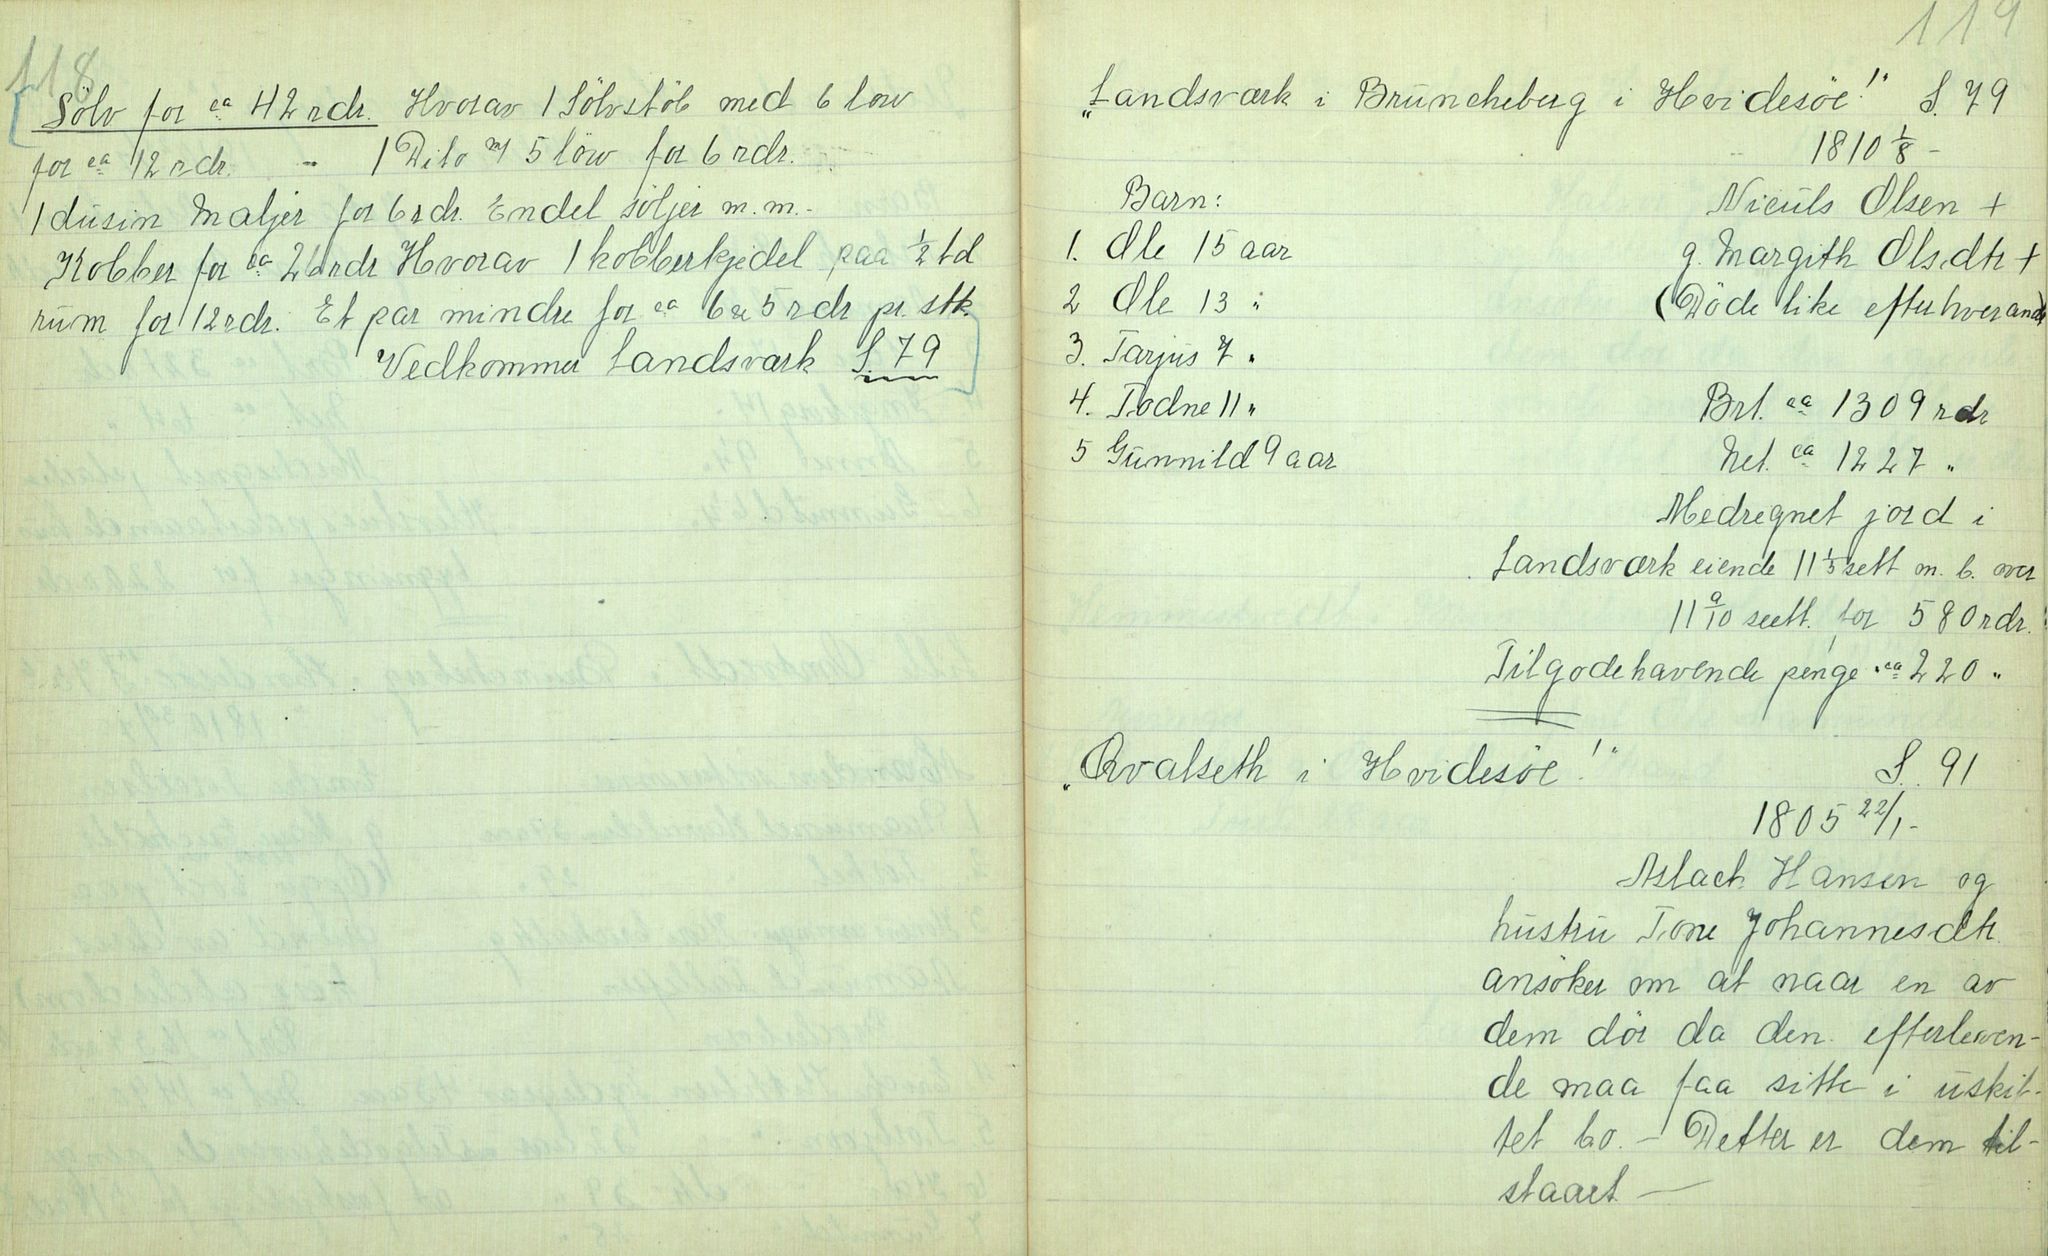 118
Sölv for ca 42 rdr. Hvorav 1 Sölvstöb med 6 löw
for ca 12 rdr. - 1 Dito m 5 löw for 6 rdr.
1 dusin Maljer for 6 rdr. Endel söljer m.m.-
Kobber for ca 26 rdr Hvorav 1 kobberkjedel paa 1/2 td
rum for 12 rdr. Et par mindre for ca 6 a 5 rdr pr. stk.
Vedkommer Landsværk S. 79
119
„Landsværk i Bruncheberg i Hvidesöe!" S. 79
1810 1/8 -
Barn:
Niculs Olsen +
1. Ole 15 aar
g. Margith Olsdtr +
2 Ole 13 "
(Döde like efter hverandr)
3. Tarjus 7 "
4. Todne 11 "
Brt. ca 1309 rdr
5 Gunnild 9 aar
Net. ca 1227 "
Medregnet jord i
Landsværk eiende 11 1/5 sett m. b. over
11 9/10 sett. for 580 rdr.
Tilgodehavende penge ca 220 "
„Qvalseth i Hvidesöe!" S. 91
1805 22/1 -
Aslach Hansen og
hustru Tone Johannesdtr
ansöker om at naar en av
dem dör da den efterleven-
de maa faa sitte i uskif-
tet bo. - Dette er dem til-
staaet -